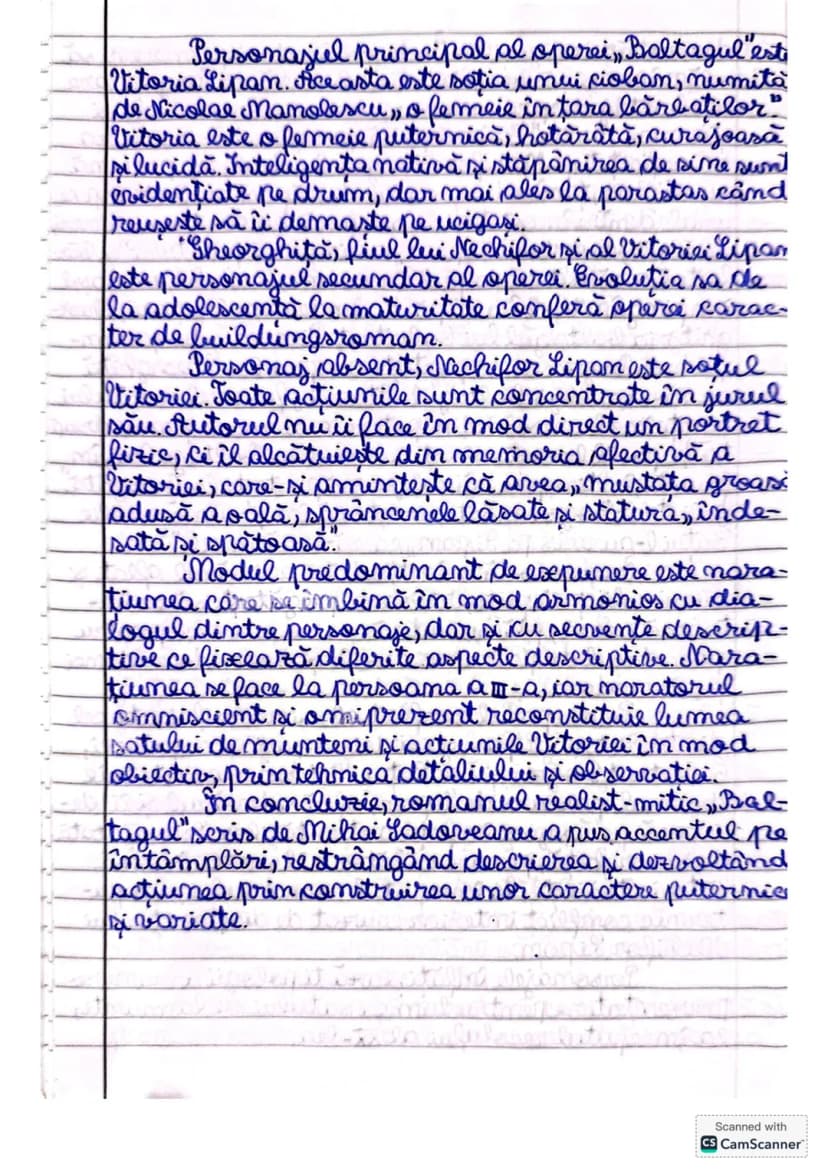 Personajul principal al operei „Baltagul" est
Vitoria Lipan. Aceasta este soția unui cioban, numită
de Nicolae Manolescu „o femeie în țara bărbaților"
Vitoria este o femeie puternică, hotărâtă, curajoasă
și lucidă. Inteligența nativă și stăpânirea de sine sunt
evidențiate pe drum, dar mai ales la parastas când
reușește să îi demaște pe ucigași.
Gheorghiță, fiul lui Nechifor și al Vitoriei Lipan
este personajul secundar al operei. Evoluția sa de
la adolescență la maturitate conferă operei carac-
ter de buildungsroman.
Personaj absent, Nechifor Lipan este soțul
Vitoriei. Toate acțiunile sunt concentrate în jurul
său. Autorul nu îi face în mod direct un portret
fizic, ci îl alcătuiește din memoria afectivă a
Vitoriei, care-și amintește că avea „mustața groasă
adusă a oală, sprâncenele lăsate și statură „înde-
sată și spătoasă."
Modul predominant de expunere este nara-
țiunea care se îmbină în mod armonios cu dia-
logul dintre personaje, dar și cu secvențe descrip-
tive ce fixează diferite aspecte descriptive. Nara-
țiunea se face la persoana a III-a, iar naratorul
omniscient și omniprezent reconstituie lumea
satului de munteni și acțiunile Vitoriei în mod
obiectiv, prin tehnica detaliului și observației.
În concluzie, romanul realist-mitic „Bal-
tagul" scris de Mihai Sadoveanu a pus accentul pe
întâmplări, restrângând descrierea și dezvoltând
acțiunea prin construirea unor caractere puternice
și variate.
Scanned with
CS CamScanner